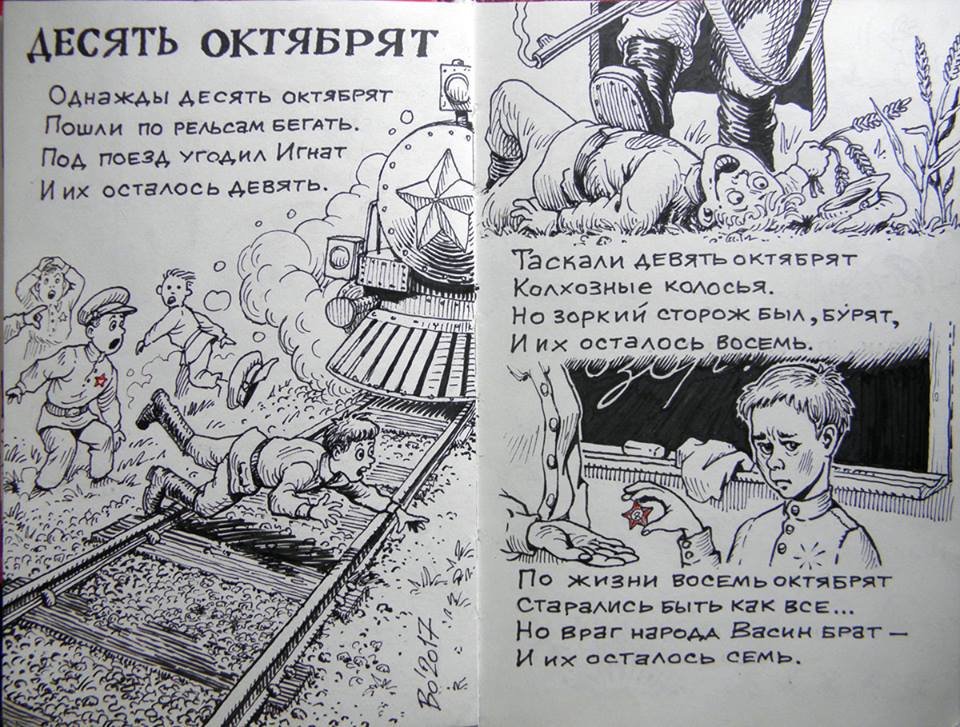 ДЕСЯТЬ ОКТЯБРЯТ
Однажды десять октябрят
Пошли по рельсам бегать.
Под поезд угодил Игнат
И их осталось девять.
Bo'2017
Таскали девять октябрят
Колхозные колосья.
Но зоркий сторож был, бурят,
И их осталось восемь.
По жизни восемь октябрят
Старались быть как все...
Но враг народа Васин брат —
И их осталось семь.